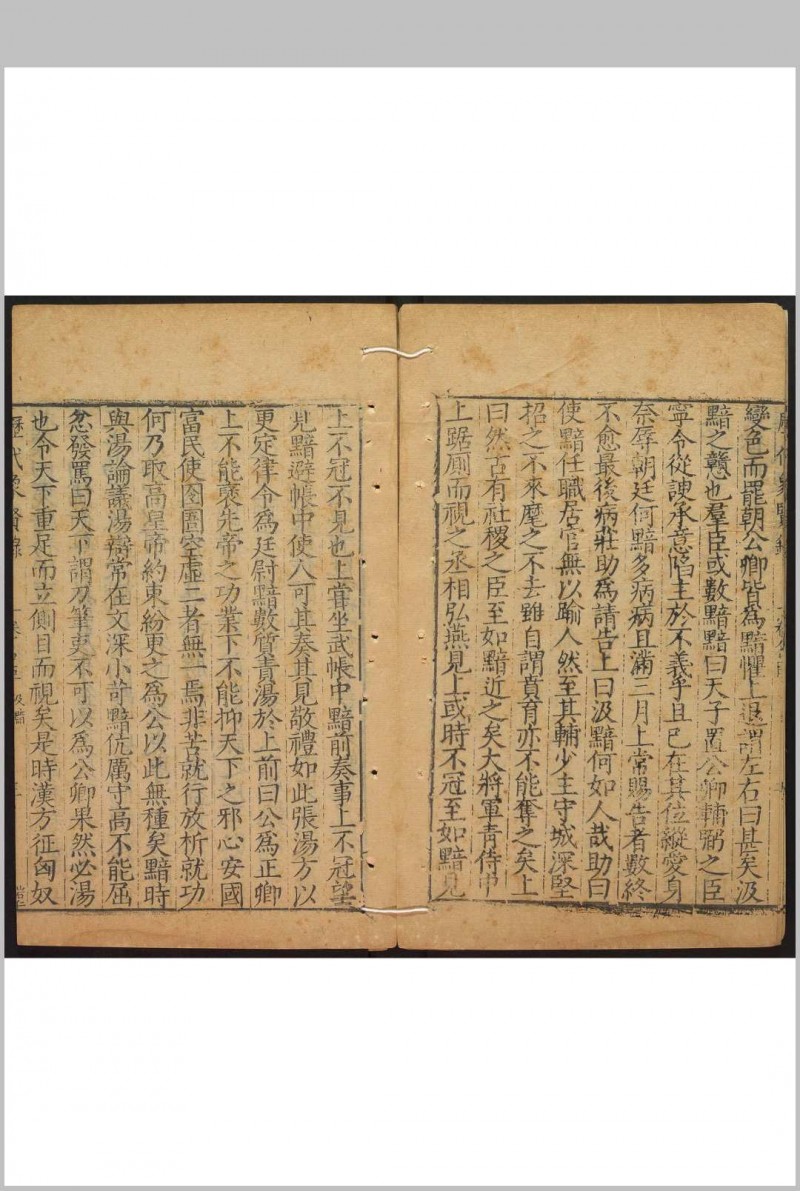 變色而罷朝公卿皆爲黯懼上退謂左右曰甚矣汲
黯之戇也羣臣或數黯黯曰天子置公卿輔弼之臣
寧令從諛承意陷主於不義乎且已在其位縱愛身
奈辱朝廷何黯多病病且滿三月上常賜告者數終
不愈最後病莊助爲請告上曰汲黯何如人哉助曰
使黯任職居官無以踰人然至其輔少主守城深堅
招之不來麾之不去雖自謂賁育亦不能奪之矣上
曰然古有社稷之臣至如黯近之矣大將軍青侍中
上踞廁而視之丞相弘燕見上或時不冠至如黯見
上不冠不見也上嘗坐武帳中黯前奏事上不冠望
見黯避帳中使人可其奏其見敬禮如此張湯方以
更定律令爲廷尉黯數質責湯於上前曰公爲正卿
上不能襃先帝之功業下不能抑天下之邪心安國
富民使囹圄空虛二者無一焉非苦就行放析就功
何乃取高皇帝約束紛更之爲公以此無種矣黯時
與湯論議湯辯常在文深小苛黯伉厲守高不能屈
忿發罵曰天下謂刀筆吏不可以爲公卿果然必湯
也令天下重足而立側目而視矣是時漢方征匈奴
歷代象賢錄